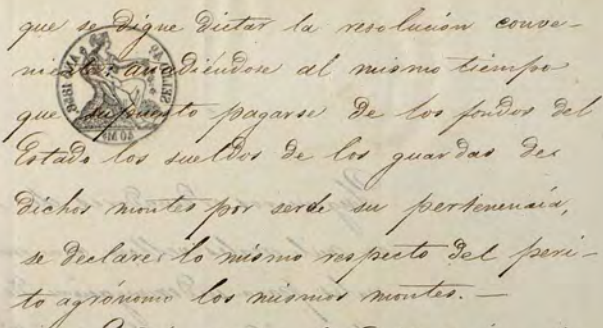 que se digne dictar la resolucion conve-
niente: añadiéndose al mismo tiempo
que supuesto pagarse de los fondos del
Estado los sueldos de los guardas de
dichos montes por serle su pertenencia,
se declare lo mismo respecto del peri-
to agrónomo los mismos montes. —